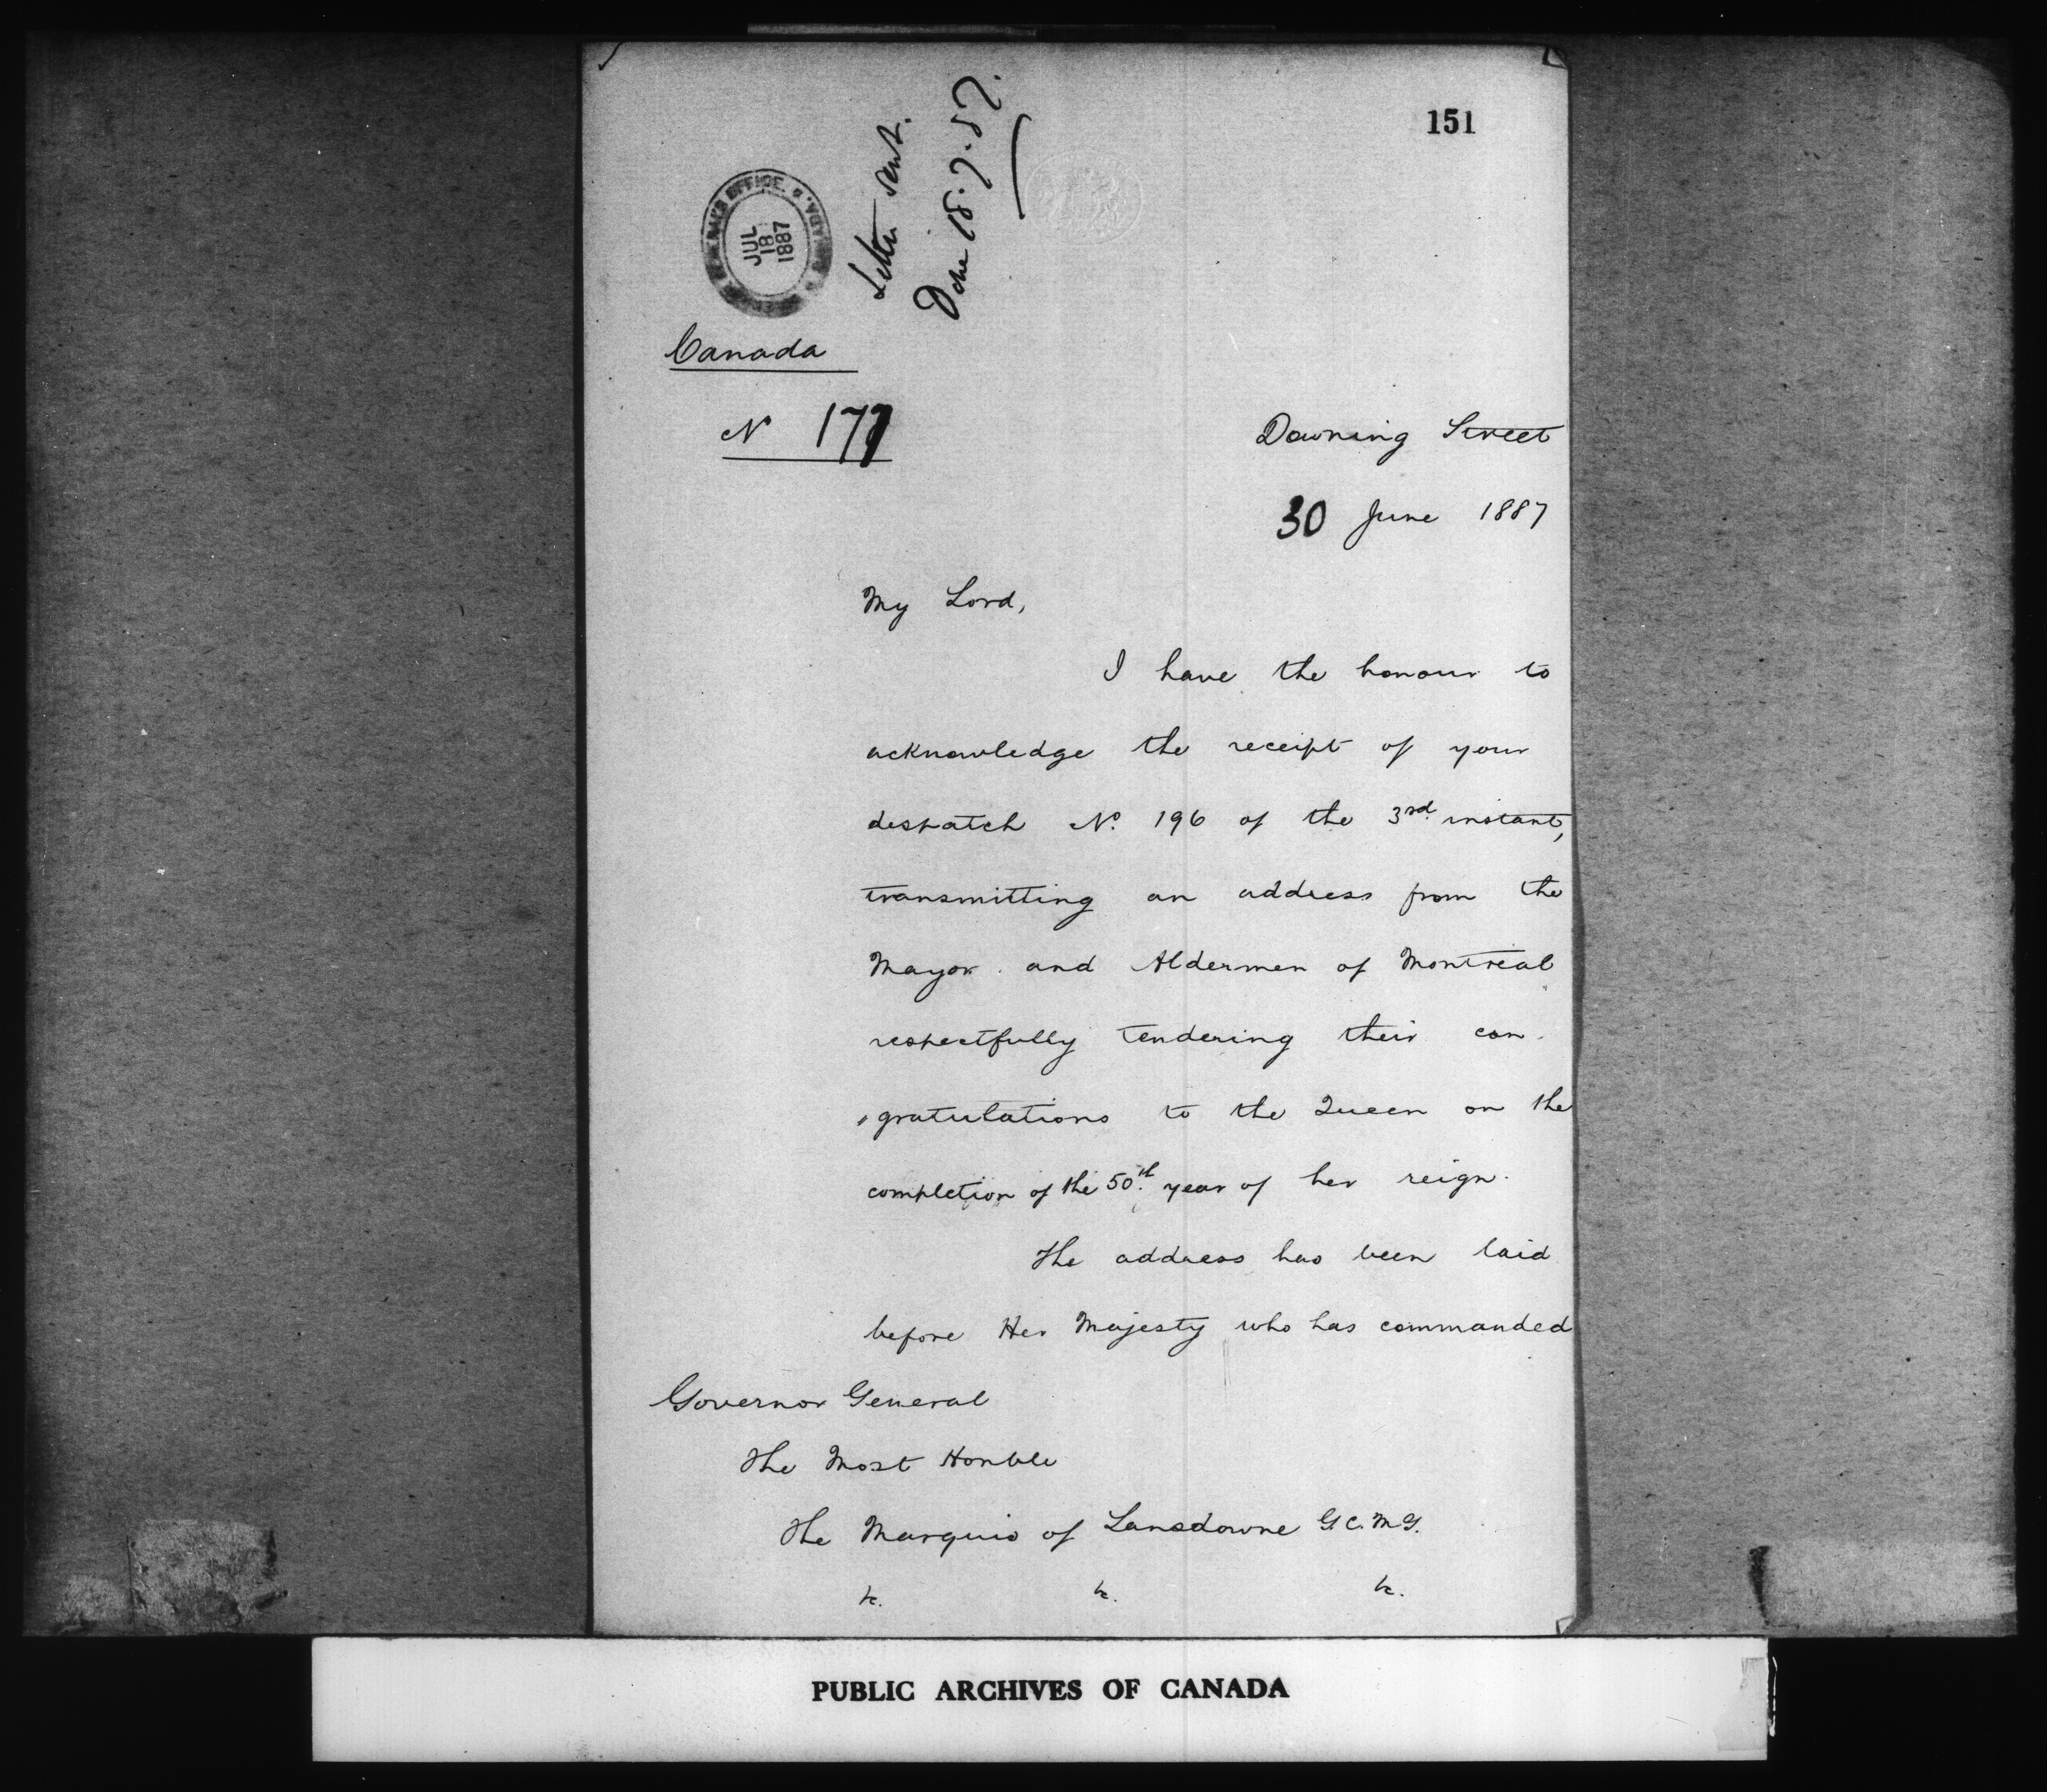 151
Letter sent.
Done 18.7.87.
JUL
18
1887
Canada
No 177
Downing Street
30 June 1887
My Lord,
I have the honour to
acknowledge the receipt of your
despatch No. 196 of the 3rd instant,
transmitting an address from the
Mayor and Aldermen of Montreal
respectfully tendering their con-
"gratulations to the Queen on the
completion of the 50th year of her reign.
The address has been laid
before Her Majesty who has commanded
Governor General
The Most Honble
The Marquis of Lansdowne G.C.M.G.
&c. &c. &c.
PUBLIC ARCHIVES OF CANADA